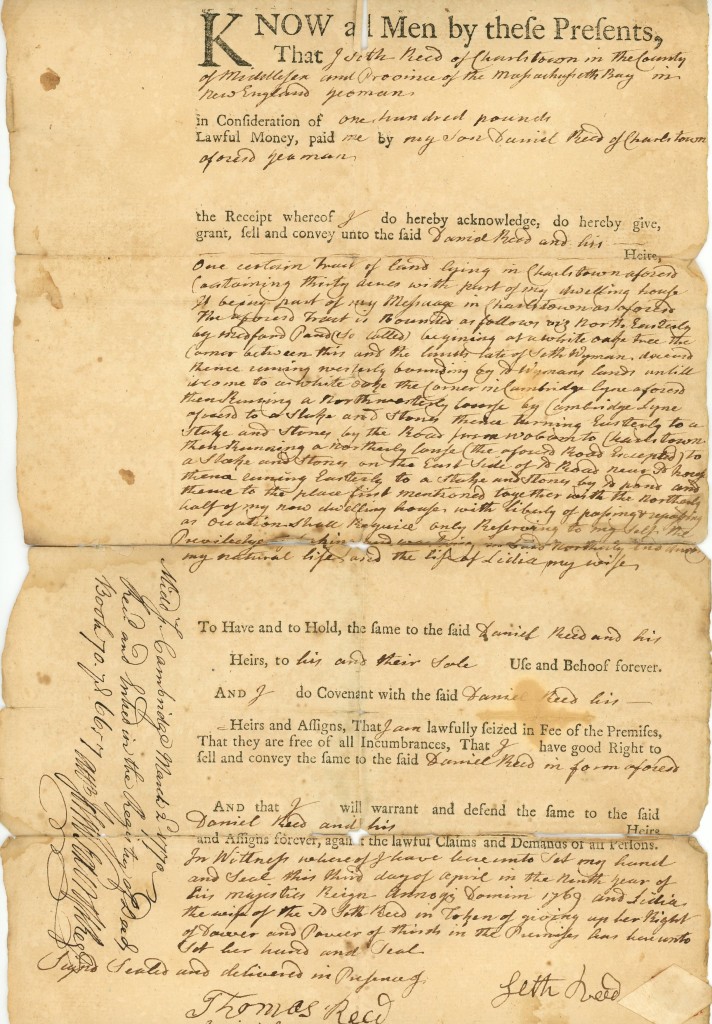 KNOW all Men by theſe Preſents,
That I Seth Reed of Charlstown in the County
of Middlesex and Province of the Massachusetts Bay in
New England yeoman
in Conſideration of one hundred pounds
Lawful Money, paid me by my Son Daniel Reed of Charlstown
aforesd yeoman
the Receipt whereof I do hereby acknowledge, do hereby give,
grant, ſell and convey unto the ſaid Daniel Reed and his
Heirs,
One certain Tract of land lying in Charlstown aforesd
Containing thirty acres with part of my dwelling house
It being part of my Messuage in Charlstown as aforesd
The aforesd Tract is Bounded as follows viz North Easterly
by Medford Pond (so Called) begining at a white oake tree the
Corner between this and the lands late of Seth Wyman, deceasd
thence runing westerly bounding by sd Wymans lands untill
it come to a white oake the Corner in Cambridge Lyne aforesd
then Running a Northwesterly Course by Cambridge Lyne
aforesd to a Stake and Stones thence turning Easterly to a
Stake and Stones by the Road from Wobourn to Charlstown
then Running a northerly Course (the aforesd Road Excepted) to
a Stake and Stones on the East Side of sd Road near sd house
thence runing Easterly to a Stake and Stones by sd pond and
thence to the place first mentioned together with the Northerly
half of my now dwelling house with liberty of passing & repassing
as Occation Shall Require only Reserving to my Self the
Priviledge and in Said Northerly End
my natural life and the life of Lidia my wife
To Have and to Hold, the ſame to the ſaid Daniel Reed and his
Heirs, to his and their Sole Uſe and Behoof forever.
AND I do Covenant with the ſaid Daniel Reed his
Heirs and Aſſigns, That I am lawfully ſeized in Fee of the Premiſes,
That they are free of all Incumbrances, That I have good Right to
ſell and convey the ſame to the ſaid Daniel Reed in form aforesd
AND that I will warrant and defend the ſame to the ſaid
Daniel Reed and his Heirs
and Aſſigns forever, againſt the lawful Claims and Demands of all Perſons.
In Witness whereof I have hereunto Set my hand
and Seal this third day of April in the Ninth year of
his majesties Reign Annoqs Domini 1769 and Lidia
the wife of the sd Seth Reed in Token of giving up her Right
of Dower and Power of thirds in the Premises has hereunto
Set her hand and Seal
Signd Sealed and delivered in Presence of
Seth Reed
Thomas Reed
Middx. Cambridge March 2d 1770
Recd and Entred in the Registry of Deeds
Book 70. pa